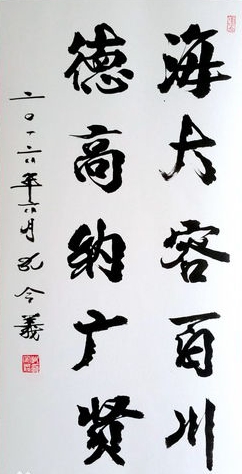 海大容百川
德高纳广贤
二〇一六年六月孔令義